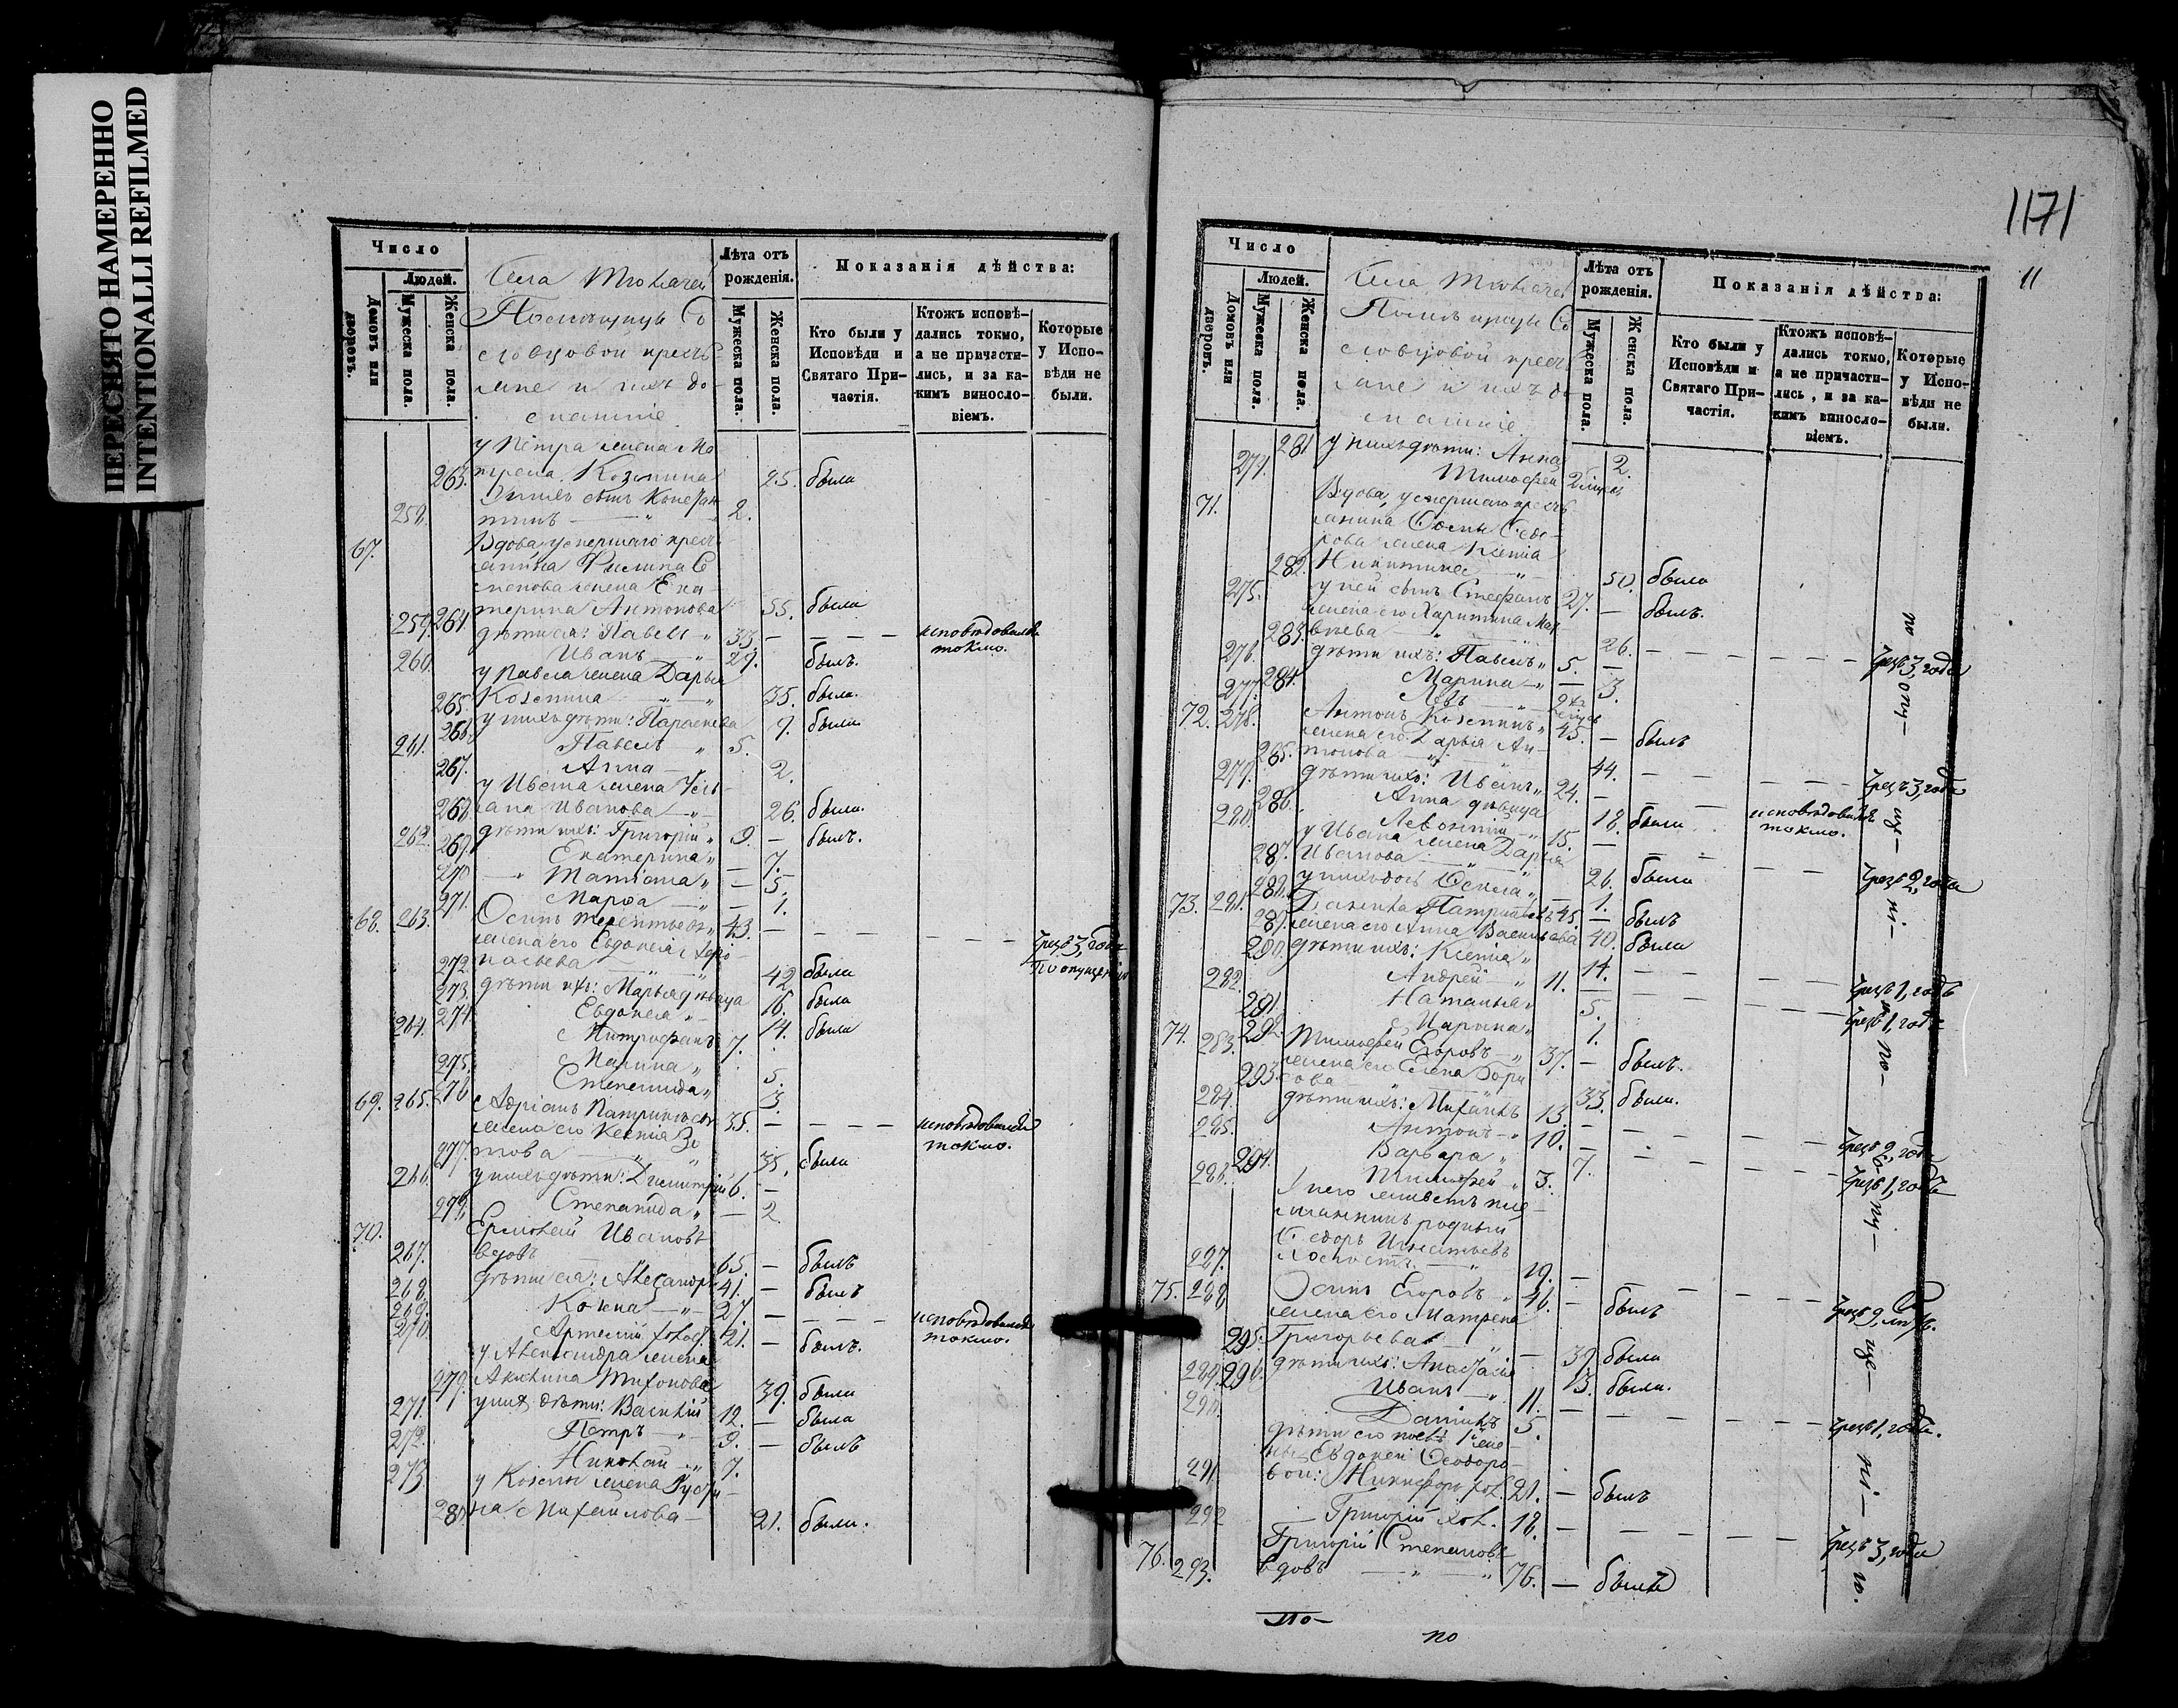 ПЕРЕСНЯТО НАМЕРЕННО
INTENTIONALLI REFILMED
Число
Людей.
Домовъ или дворовъ.
Мужеска пола.
Женска пола.
Лѣта отъ рожденія.
Мужеска пола.
Женска пола.
Показанія дѣйства:
Кто были у Исповѣди и Святаго Причастія.
Ктожъ исповѣдались токмо, а не причастились, и за какимъ винословіемъ.
Которые у Исповѣди не были.
Села
Помѣщицы Со
словцовой кресть
яне и ихъ до
машніе
у Петра жена Ма
263. трена Козмина 25. была
У нихъ сынъ Констан
258. тинъ 2.
67. Вдова умершаго крест
янина Филипа Се
менова жена Ека
264. терина Антонова 55. была
259. дѣти ея: Павелъ 33. — исповѣдовался токмо.
260. Иванъ 29. былъ.
у Павла жена Дарья
265. Козмина 35. была.
266. у нихъ дѣти: Параскева 9. была
261. Павелъ 5.
267. Анна 2.
у Ивана жена Улья
268. на Иванова 26. была.
262. дѣти ихъ: Григорій 9. — былъ.
269. Екатерина — 7.
270. Татіана — 5.
271. Марѳа — 1.
68. 263. Осипъ Терентьевъ 43. — чрезъ 3, года
По опущенію
жена его Евдокія Аѳа
272. насьева 42. была
273. дѣти ихъ: Марья дѣвица 16. была
274. Евдокія 14. была
264. Митрофанъ 7.
275. Марина 5.
276. Степанида 3.
69. 265. Адріанъ Патрикѣевъ 35. — исповѣдовался токмо.
жена его Ксенія Зо
277. това 35. была
266. у нихъ дѣти: Димитрій 6. —
278. Степанида — 2.
70. Ермолай Ивановъ
267. вдовъ 65. — былъ
268. дѣти его: Александръ 41. — былъ
269. Козма 27. — исповѣдовался токмо.
270. Артемій холос. 21. — былъ.
у Александра жена
279. Акилина Тихонова 39. была
271. у них дѣти: Василій 12. — была
272. Петръ 9. — былъ
273. Николай 7.
у Козмы жена Усти
280. на Михайлова 21. была.
1171
11
Число
Людей.
Домовъ или дворовъ.
Мужеска пола.
Женска пола.
Лѣта отъ рожденія.
Мужеска пола.
Женска пола.
Показанія дѣйства:
Кто были у Исповѣди и Святаго Причастія.
Ктожъ исповѣдались токмо, а не причастились, и за какимъ винословіемъ.
Которые у Исповѣди не были.
Села
Помѣщицы Со
словцовой кресть
яне и ихъ до
машніе
281 у нихъ дѣти: Анна 2.
274. Тимофей
71. Вдова умершаго кресть
янина
жена Ксенія
282. Никитина 50. была
275. у ней сынъ Стефанъ 27. — былъ.
жена его Харитина Мат
283. вѣева 26. — чрезъ 3, года
276. дѣти ихъ: Павелъ 5. —
284. Марина — 3.
277. Левъ
72. 278. Антонъ Козминъ 45. — былъ
жена его Дарья Ан
285. тонова 44. — чрезъ 3, года
279. дѣти ихъ: Иванъ 24. — исповѣдовался токмо.
286. Анна дѣвица 18. была
280. Леонтій 15. — чрезъ 2, года
у Ивана жена Дарья
287. Иванова 26. была
288. у нихъ дочь 1.
73. 281. Патрикѣевъ 45 — былъ
289. жена его Анна Васильева 40. была
290. дѣти ихъ: Ксенія 14. — чрезъ 1, годъ
282. Андрей 11. — чрезъ 1, годъ
291. Наталья 5.
292. Марина 1.
74. 283. Тимофей Егоровъ 37. — былъ.
жена его Елена Бори
293. сова 33. была.
284. дѣти ихъ: Михаилъ 13. — чрезъ 2, года
285. Антонъ 10. — чрезъ 1, годъ
294. Варвара 7.
286. Тимофей 3.
У него живетъ пле
мянникъ родный
Ѳедоръ Игнатьевъ
287. холостъ 19. —
75. 288 Осипъ Егоровъ 46. — былъ
жена его Матрена
295. Григорьева 39. была
296. дѣти ихъ: Анастасія 13. была.
289. Иванъ 11. — чрезъ 1, годъ.
290. Даніилъ 5.
дѣти его
Евдокіи Ѳеодоро
291. вой: Никифоръ хол. 21. — былъ
292 Григорій хол. 18. — чрезъ 3, года
76. Григорій Степановъ
293. вдовъ 76. — былъ
по опу-ще-ні-ю.
по